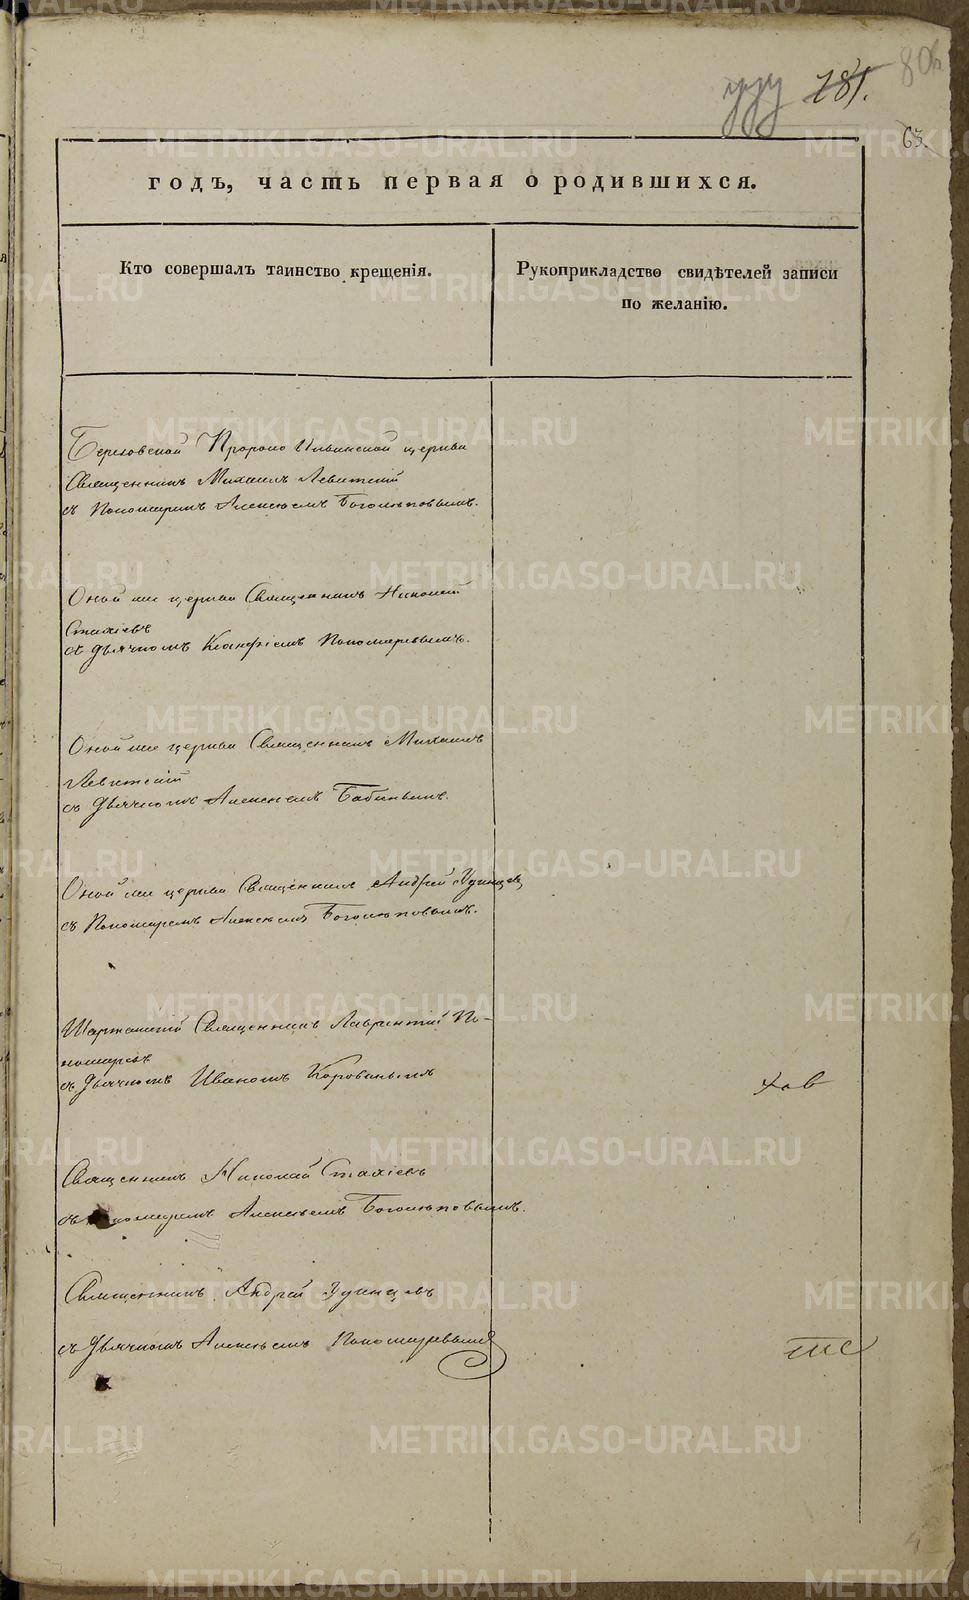 781.
63.
годъ, часть первая о родившихся.
Кто совершалъ таинство крещенія.
Рукоприкладство свидѣтелей записи
по желанію.
Березовской Пророко Ильинской церкви
Священникъ Михаилъ Левитскій
съ Пономаремъ Алексѣемъ Боголѣповымъ.
Оной же церкви Священникъ Николай
Стахіевъ
съ Дьячкомъ Пономаревымъ.
Оной же церкви Священникъ Михаилъ
Левитскій
съ Дьячкомъ Алексѣемъ Бабинымъ.
Оной же церкви Священникъ Андрей Удинцевъ
съ Пономаремъ Алексѣемъ Боголѣповымъ.
Шарташскій Священникъ Лаврентій По-
номаревъ
съ Дьячкомъ Иваномъ Коровинымъ
Священникъ Николай Стахіевъ
съ Пономаремъ Алексѣемъ Боголѣповымъ.
Священникъ Андрей Удинцевъ
съ Дьячкомъ Алексѣемъ Пономаревымъ
METRIKI.GASO-URAL.RU